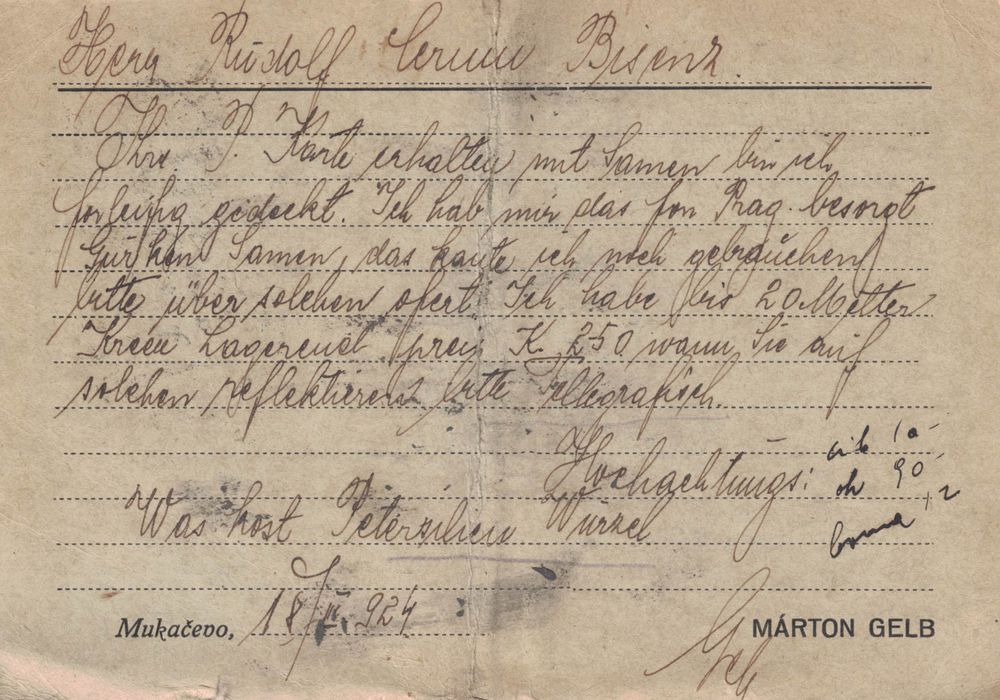 Herr Rudolf Cerum Bisenz.
Ihre P. Karte erhalten, mit Samen bin ich
forleufig gedeckt. Ich hab mir das fon Prag besorgt
Gurken Samen, das kante ich noch gebrauchen
bitte über solchen ofert. Ich habe bis 20 Metter
Kreen Lagerend prei K. 250 wann Sie auf
solchen reflektieren bitte Tellegrafisch.
Hochachtungs:
10
90
12
Was kost Petersilien Würzel
Mukačevo, 18/II. 924
MÁRTON GELB
Gelb